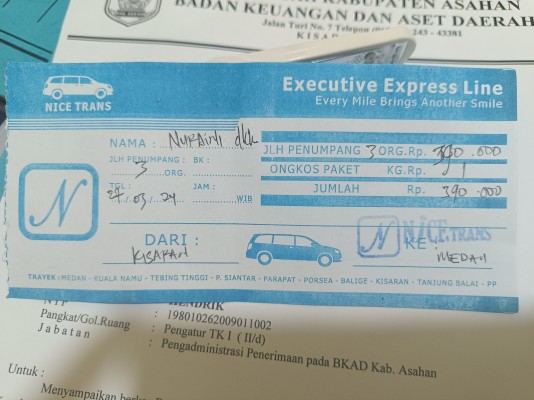 KABUPATEN ASAHAN
BADAN KEUANGAN DAN ASET DAERAH
Jalan Turi No. 7 Telepon 243 - 43381
KISA
NICE TRANS
Executive Express Line
Every Mile Brings Another Smile
NAMA : Nuraini dkk
JLH PENUMPANG 3 ORG. Rp. 390.000
JLH PENUMPANG : BK :
3 ORG.
ONGKOS PAKET KG. Rp.
TGL : JAM :
27/03/24 WIB
JUMLAH Rp. 390.000
N
DARI : KISARAN
N NICE TRANS
KE : MEDAN
TRAYEK : MEDAN - KUALA NAMU - TEBING TINGGI - P. SIANTAR - PARAPAT - PORSEA - BALIGE - KISARAN - TANJUNG BALAI - PP
HENDRIK
: 198010262009011002
Pangkat/Gol.Ruang : Pengatur TK I ( II/d)
Jabatan : Pengadministrasi Penerimaan pada BKAD Kab. Asahan
Untuk :
Menyampaikan